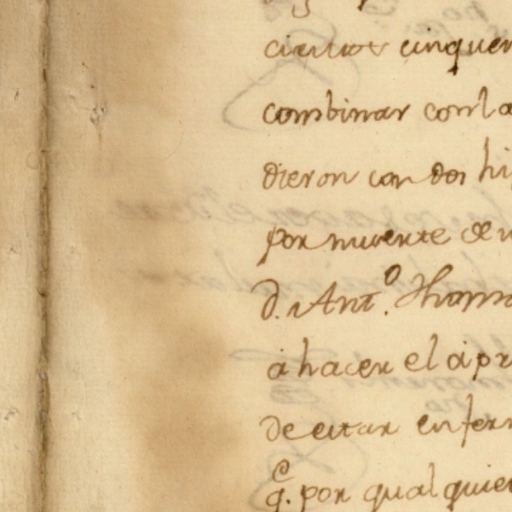 cinquen
combinar con la
dieron con dos hi
por muerte de
D. Antº. Thoma
à hacer el apr
de estar enfer
q. por qualquier